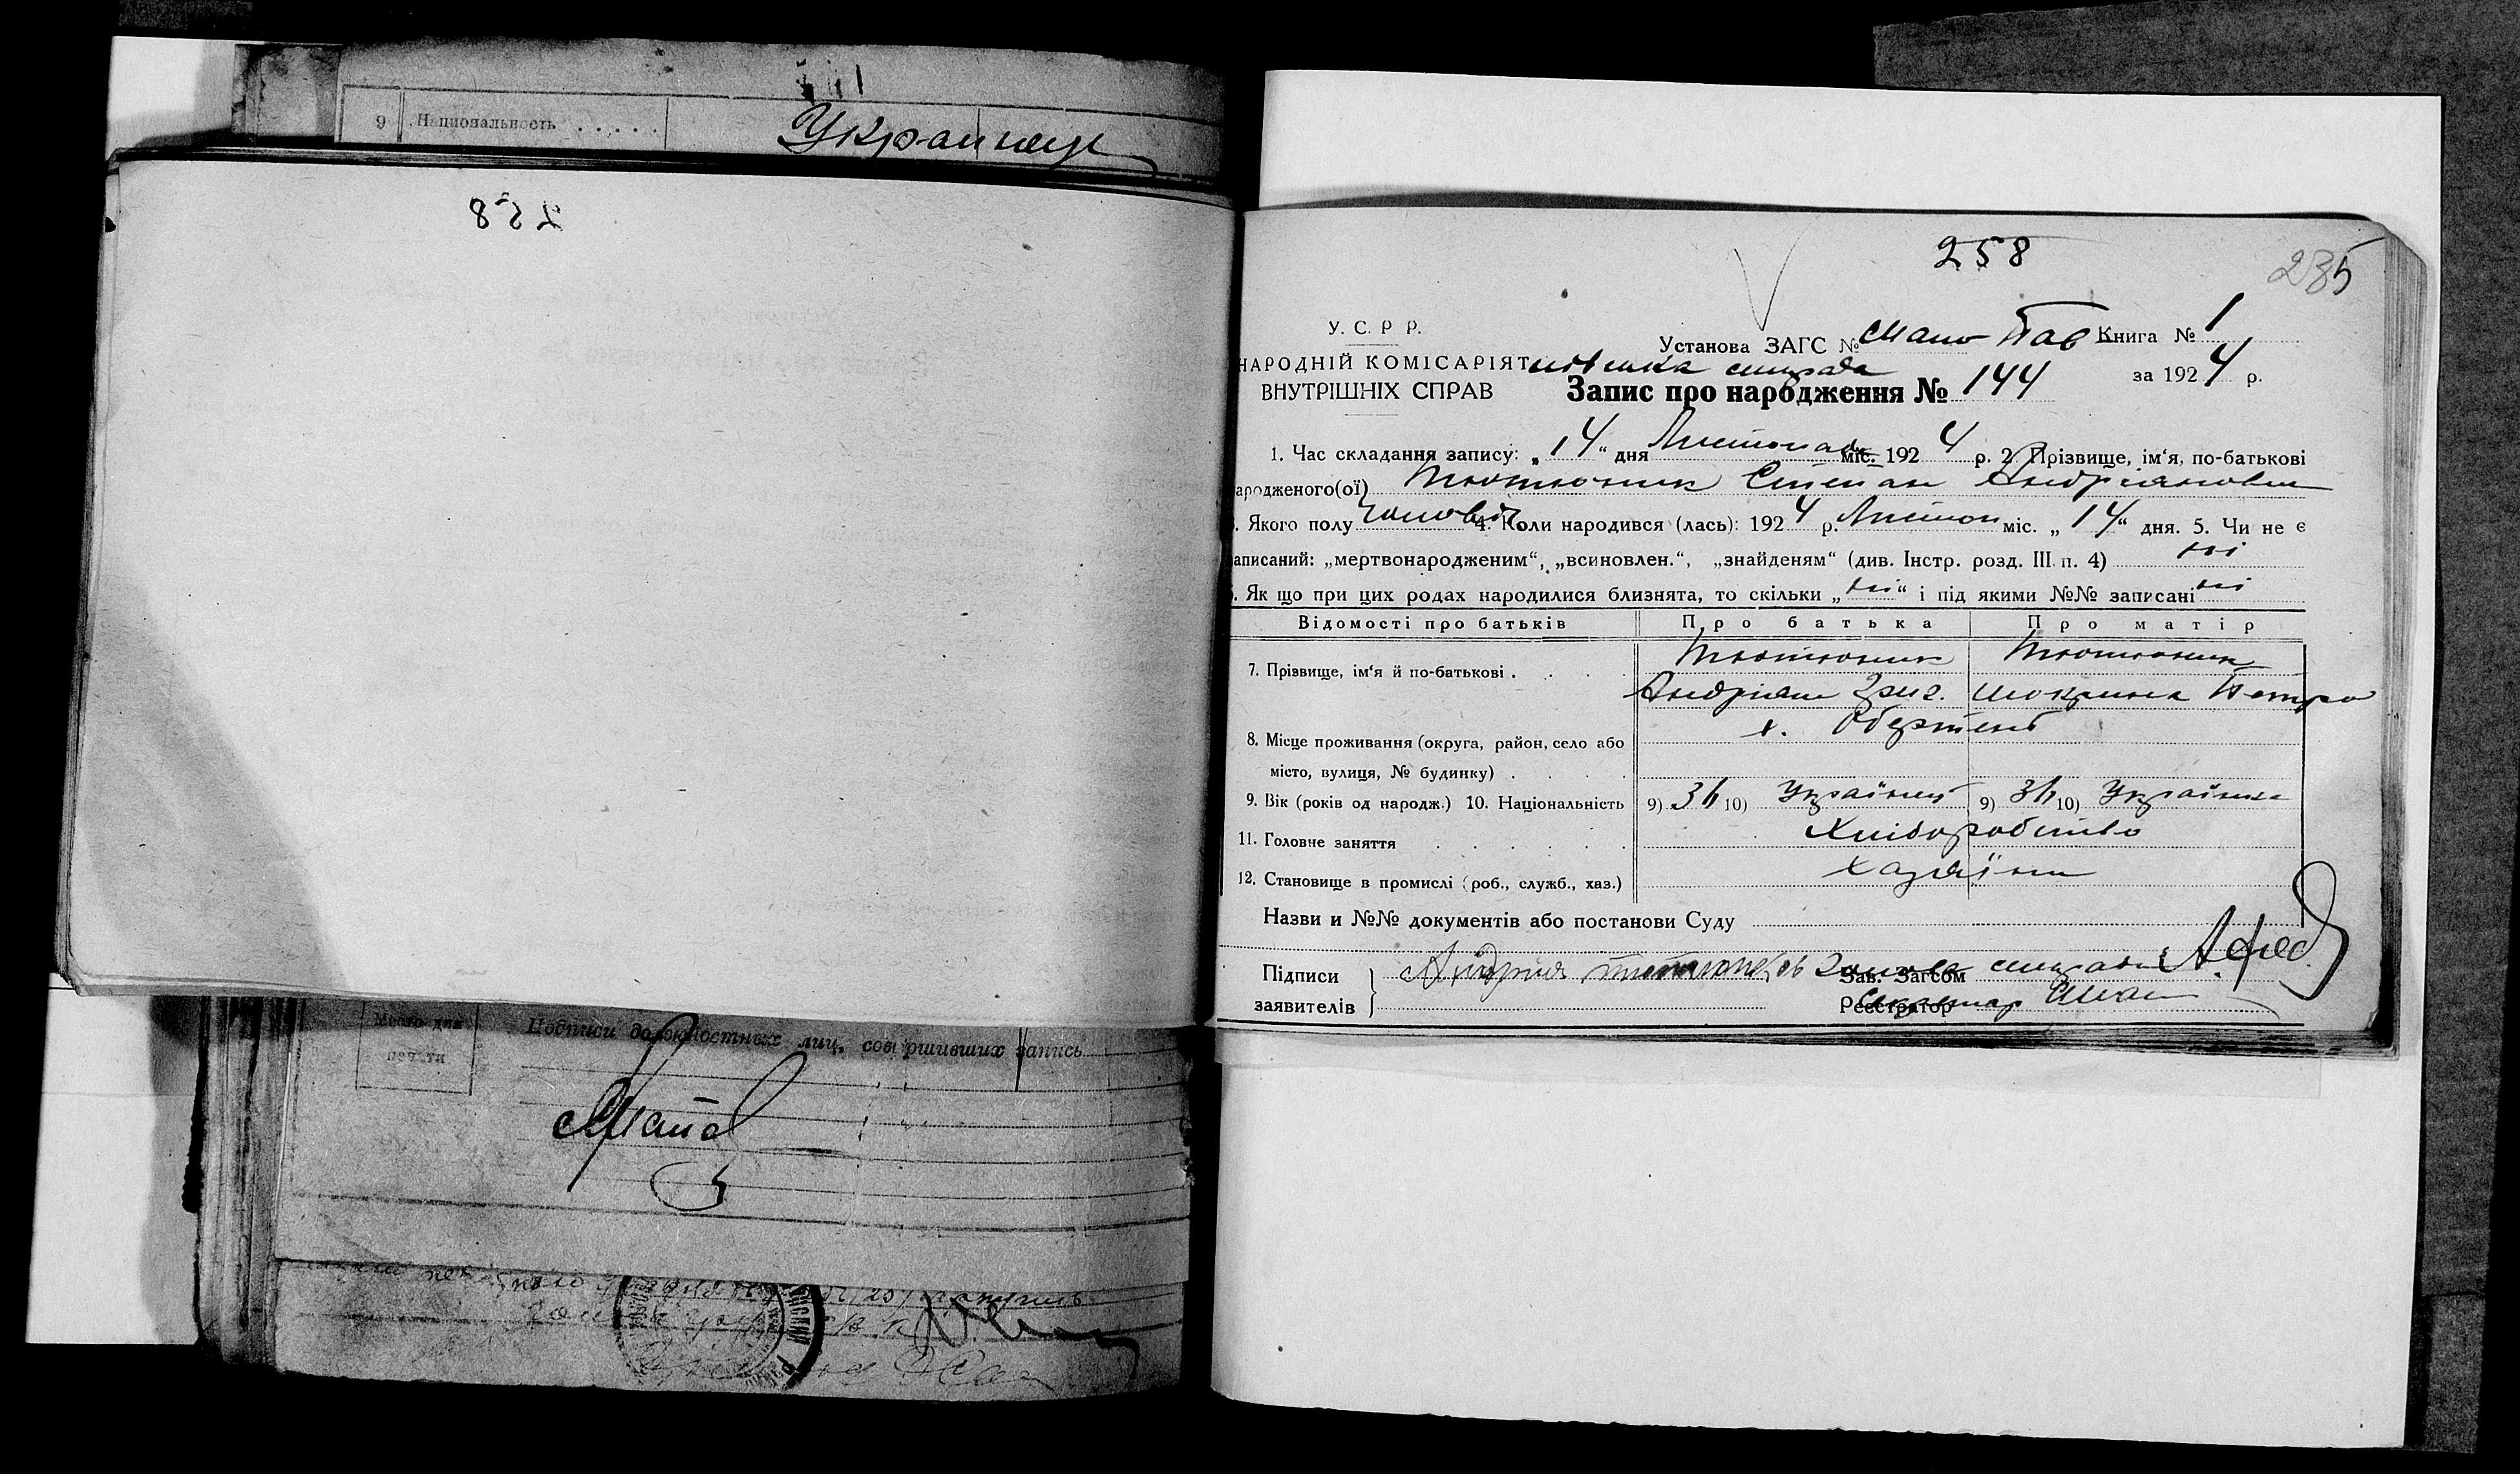 9 Национальность . . . . .
Украинец
258
258
235
У. С. Р Р.
Установа ЗАГС № Мало Пав Книга № 1
НАРОДНІЙ КОМІСАРІЯТ
сільрада
за 1924 р.
ВНУТРІШНІХ СПРАВ
Запис про народження № 144
1. Час складання запису: „14“ дня Листопада міс. 1924 р. 2. Прізвище, ім‘я, по-батькові
ародженого(ої) Тютюник Степан Андріянович
. Якого полу чоловіч 4. Коли народився (лась): 1924 р. Листоп міс. „14“ дня. 5. Чи не є
аписаний: „мертвонародженим“, „всиновлен.“, „знайденям“ (див. Інстр. розд. III. п. 4) ні
. Як що при цих родах народилися близнята, то скільки „ні“ і під якими №№ записані ні
Відомості про батьків Про батька Про матір
7. Прізвище, ім‘я й по-батькові . . . . Тютюник Тютюник
Андріян Григ. Мокрина Петро
8. Місце проживання (округа, район, село або х.
місто, вулиця, № будинку) . . . .
9. Вік (років од народж.) 10. Національність 9) 10) Українець 9) 10) Українка
11. Головне заняття . . . . . . Хліборобство
12. Становище в промислі (роб., служб., хаз.) хазяїни
Назви и №№ документів або постанови Суду
Підписи
заявителів
Зав. Загсом сільради
Реєстратор Секретар
Место для
печати
Подписи должностных лиц, совершивших запись